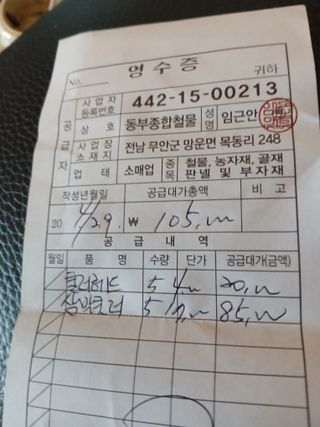 영 수 증
No. 귀하
사업자 등록번호 442-15-00213
공급자 상호 동부종합철물 성명 임근안
사업장 소재지 전남 무안군 망운면 목동리 248
업태 소매업 종목 철물, 농자재, 골재 판넬 및 부자재
작성년월일 공급대가총액 비고
20 4/29. ₩ 105,000
공 급 내 역
월일 품명 수량 단가 공급대가(금액)
5 4,000 20,000
5 85,000